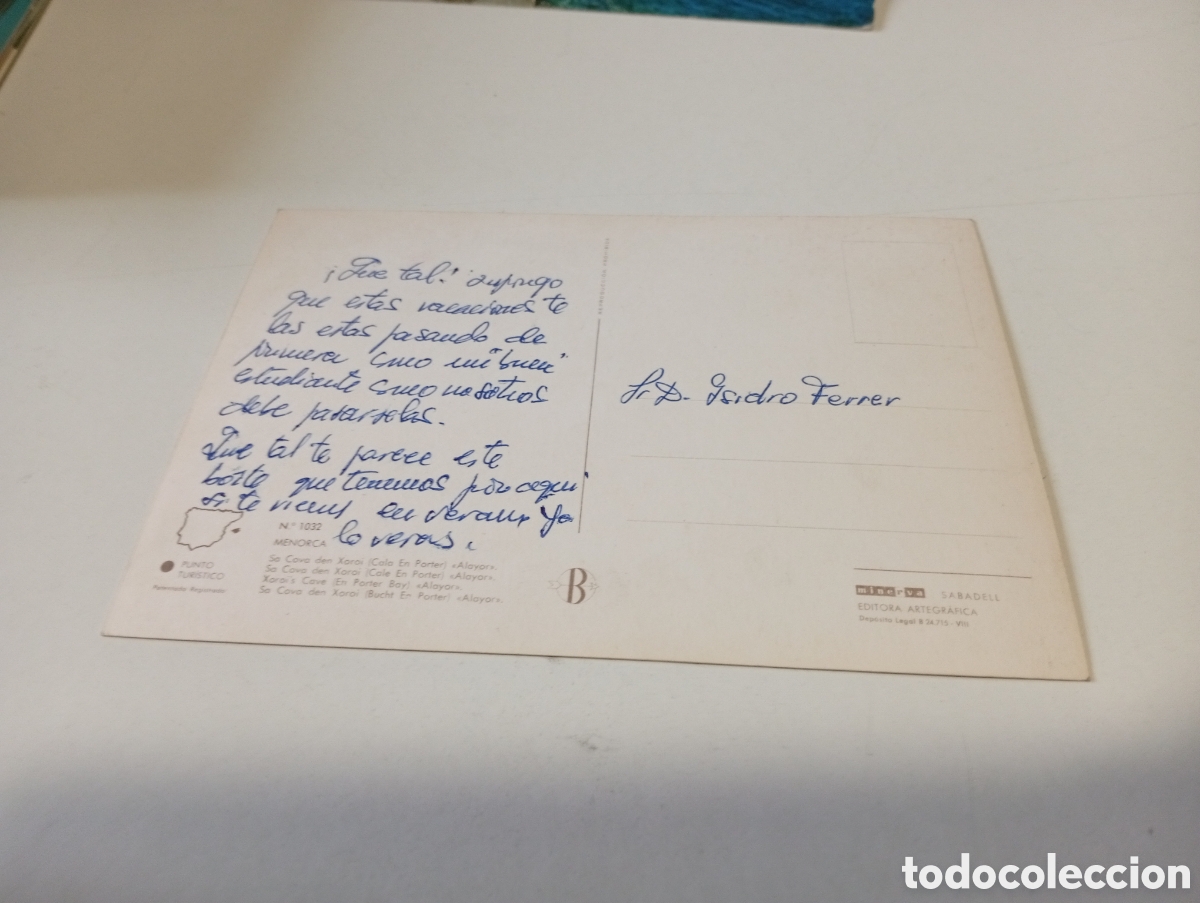 ¡Que tal! supongo
que estas vacaciones te
las estas pasando de
primera como un "buen"
estudiante como nosotros
debe pasarselas.
Que tal te parece este
que tenemos por aqui
si te vienes en verano ya
lo veras.
Sr. D. Isidro Ferrer
N.º 1032
MENORCA
Sa Cova den Xoroi (Cala En Porter) «Alayor».
Sa Cova den Xoroi (Cale En Porter) «Alayor».
Xoroi's Cave (En Porter Bay) «Alayor».
Sa Cova den Xoroi (Bucht En Porter) «Alayor».
PUNTO
TURISTICO
B
minerva SABADELL
EDITORA ARTEGRÁFICA
Depósito Legal B 34.715 - VIII
todocoleccion